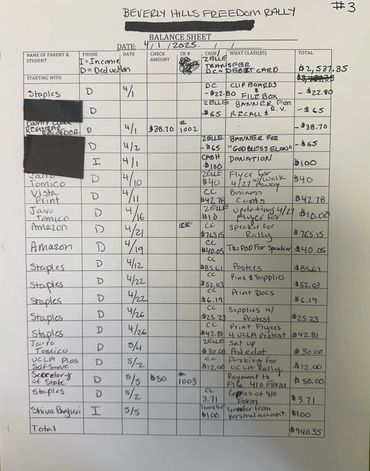 BEVERLY HILLS FREEDOM RALLY
#3
BALANCE SHEET
DATE: 4/1/2025
NAME OF PARENT & STUDENT PHONE DATE CHECK AMOUNT CK # CASH/ WHAT CLASS(ES) TOTAL
I = Income
D = Deduction
ZELLE TRANSFER
DC = DEBIT CARD
STARTING WITH $2,537.35
Staples D 4/1 DC -$22.80 CLIP BOARDS & FILE BOX -$22.80
D ZELLE -$65 BANNER FOR RECALL R.V. -$65
D 4/1 $38.70 # 1002 -38.70
D 4/2 ZELLE -$65 BANNER FOR "GOD BLESS ELON" -$65
I 4/1 CASH $100 DONATION $100
Jairo Tomico D 4/10 ZELLE $40 Flyer for 4/27 $40
Vista Print D 4/11 CC $42.78 Business Cards $42.78
Jairo Tomico D 4/16 ZELLE $10 updating 4/27 flyer for $10.00
Amazon D 4/21 CC $765.15 Speaker for Rally $765.15
Amazon D 4/19 CC $40.05 Tripod for Speaker $40.05
Staples D 4/12 CC $85.61 Posters $85.61
Staples D 4/22 CC $52.03 Pins & Supplies $52.03
Staples D 4/22 CC $6.19 Print Docs $6.19
Staples D 4/26 CC $25.23 Supplies 4/ Protest $25.23
Staples D 4/26 CC $42.81 Print Flyers 4 UCLA Protest $42.81
Jairo Tomico D 5/4 ZELLE $30.00 Set up $30.00
UCLA D 5/2 CC $12.00 Parking for UCLA Rally $12.00
Secretary of State D 5/5 $50 # 1003 Payment to File 410 Form $50.00
Staples D 5/2 CC 3.71 Copies of 410 Form $3.71
Shiva I 5/5 Transfer $100 Transfer from personal account $100
Total $940.35